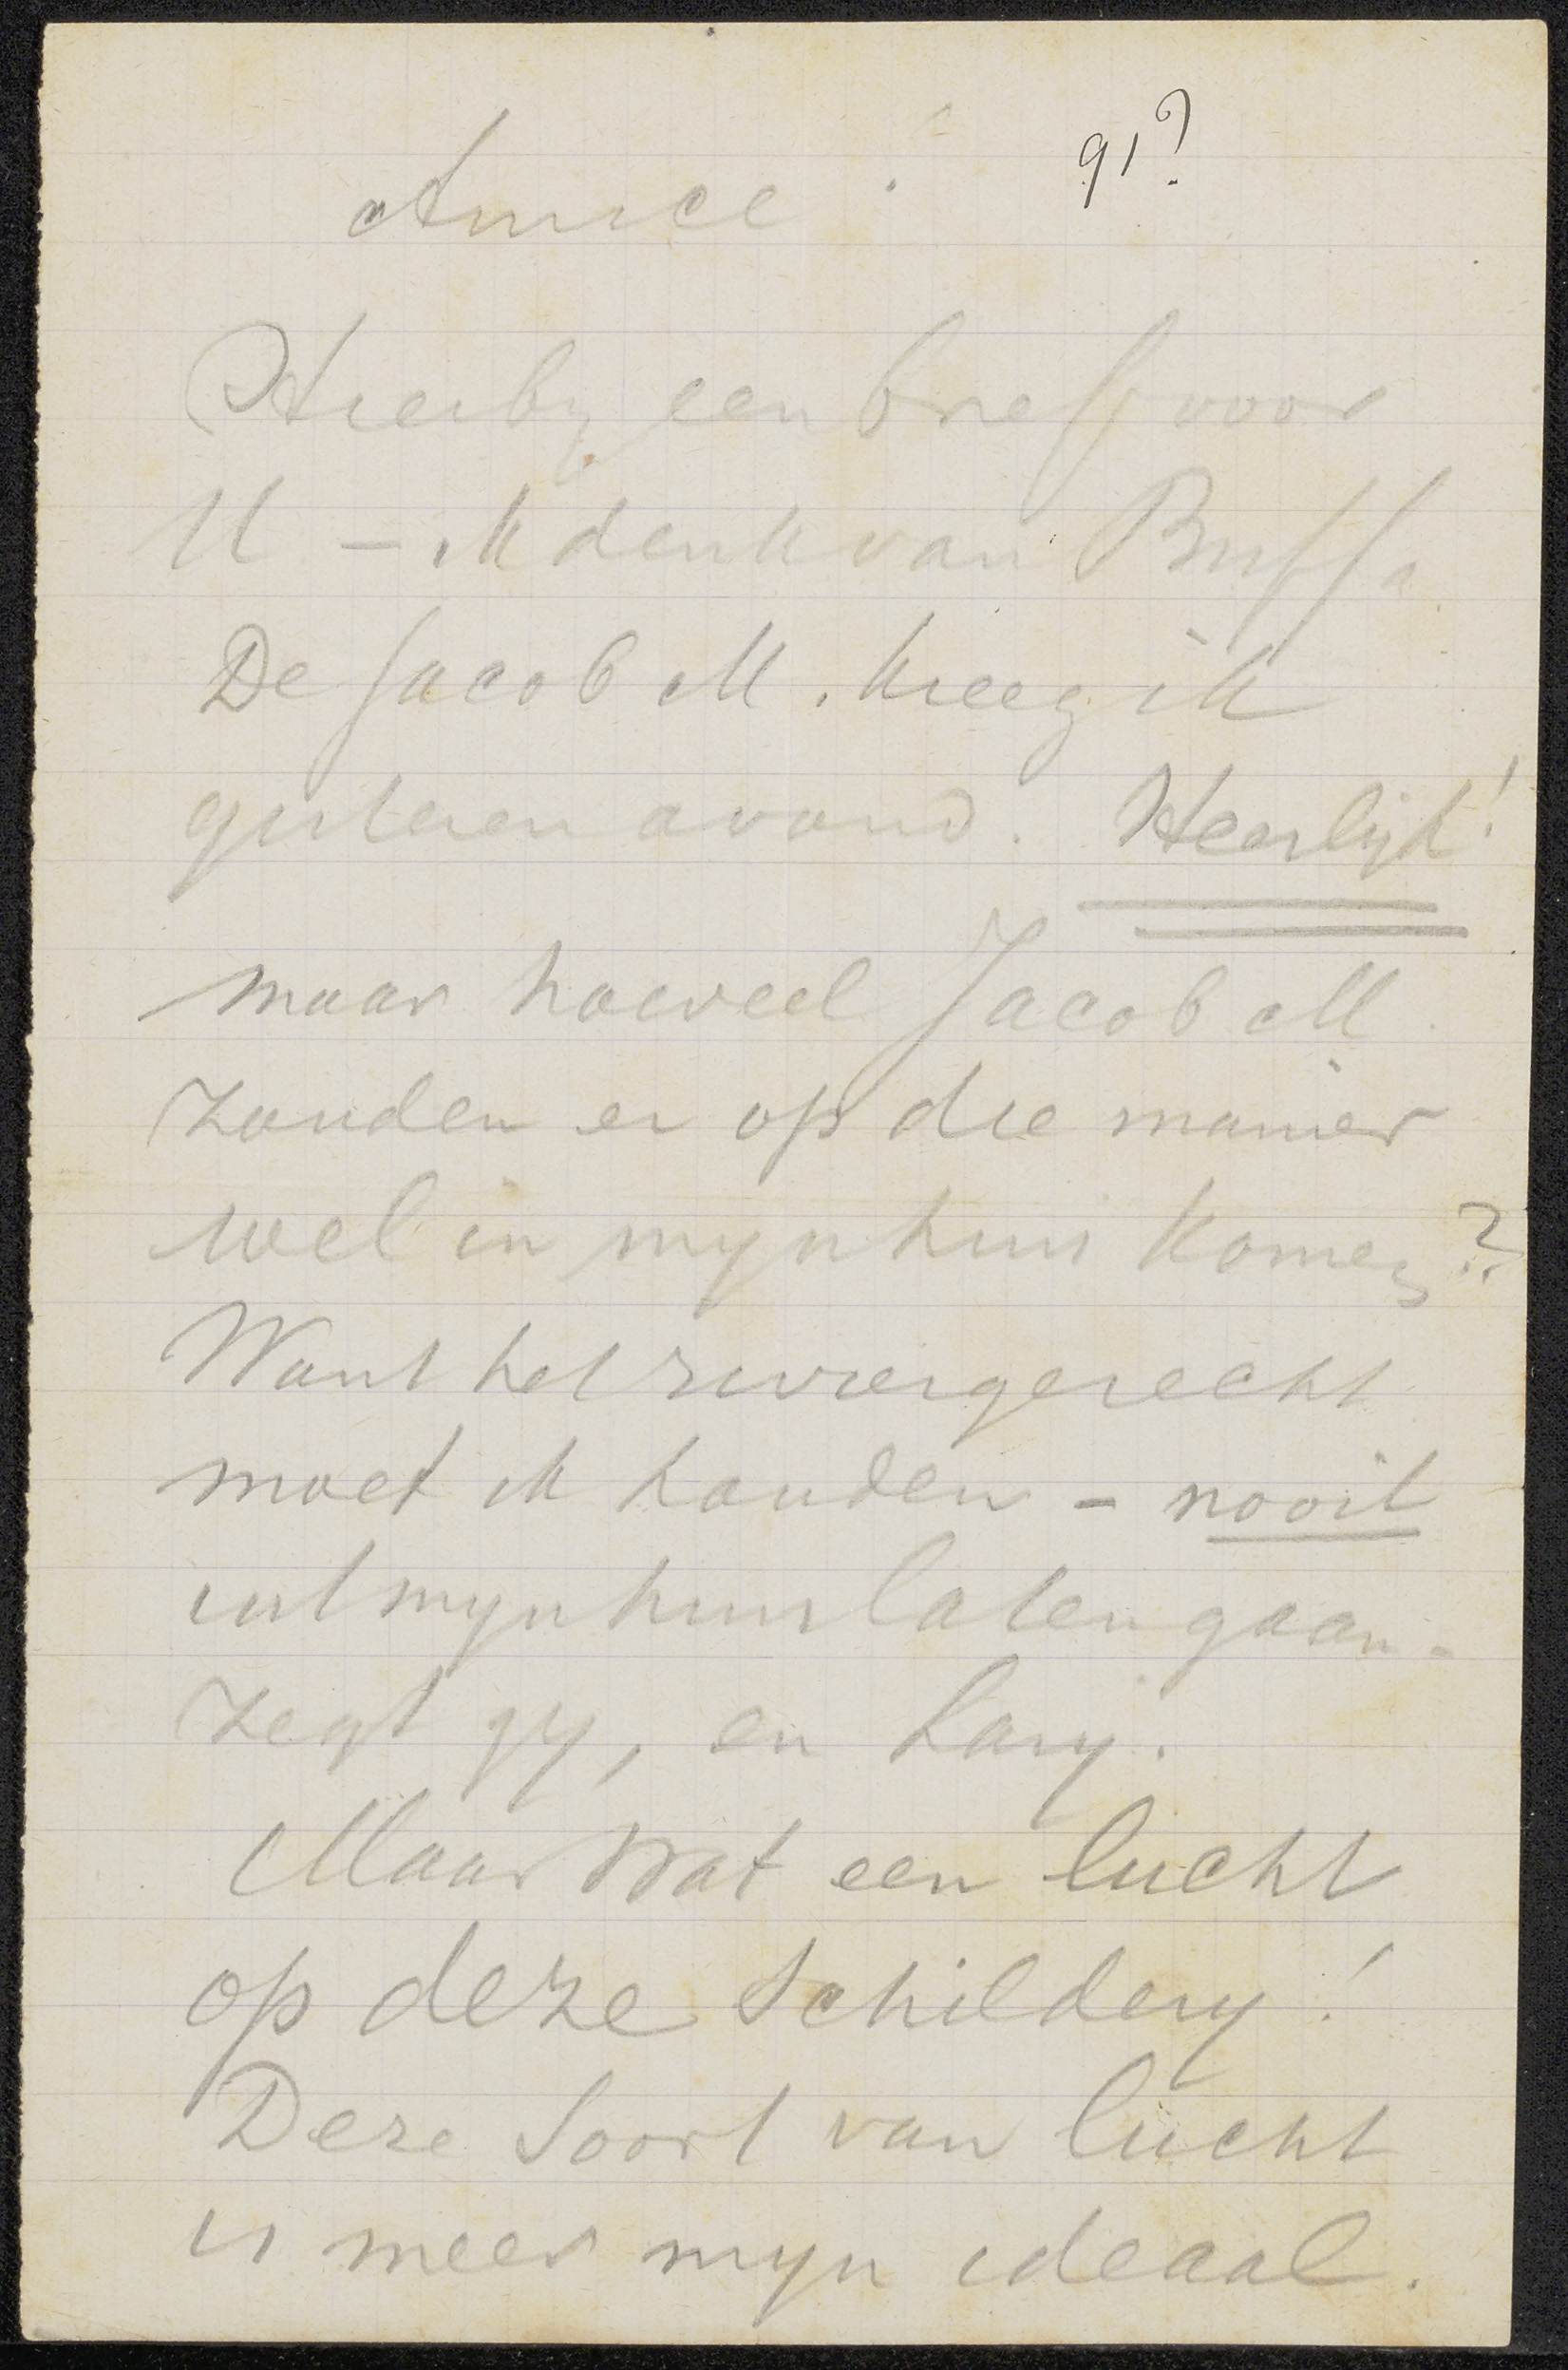 91?
Amice
Hierby een brief voor
U - ik denk van Buffa
De Jacob M. kreeg ik
gisteren avond. Heerlyk!
maar hoeveel Jacob M.
zouden er op die manier
wel in myn huis komen?
Want het riviergezecht
moet ik houden - nooit
uit myn huis laten gaan.
zegt gy, en Lary.
Maar wat een lucht
op deze schildery!
Deze soort van lucht
is meer myn ideaal.